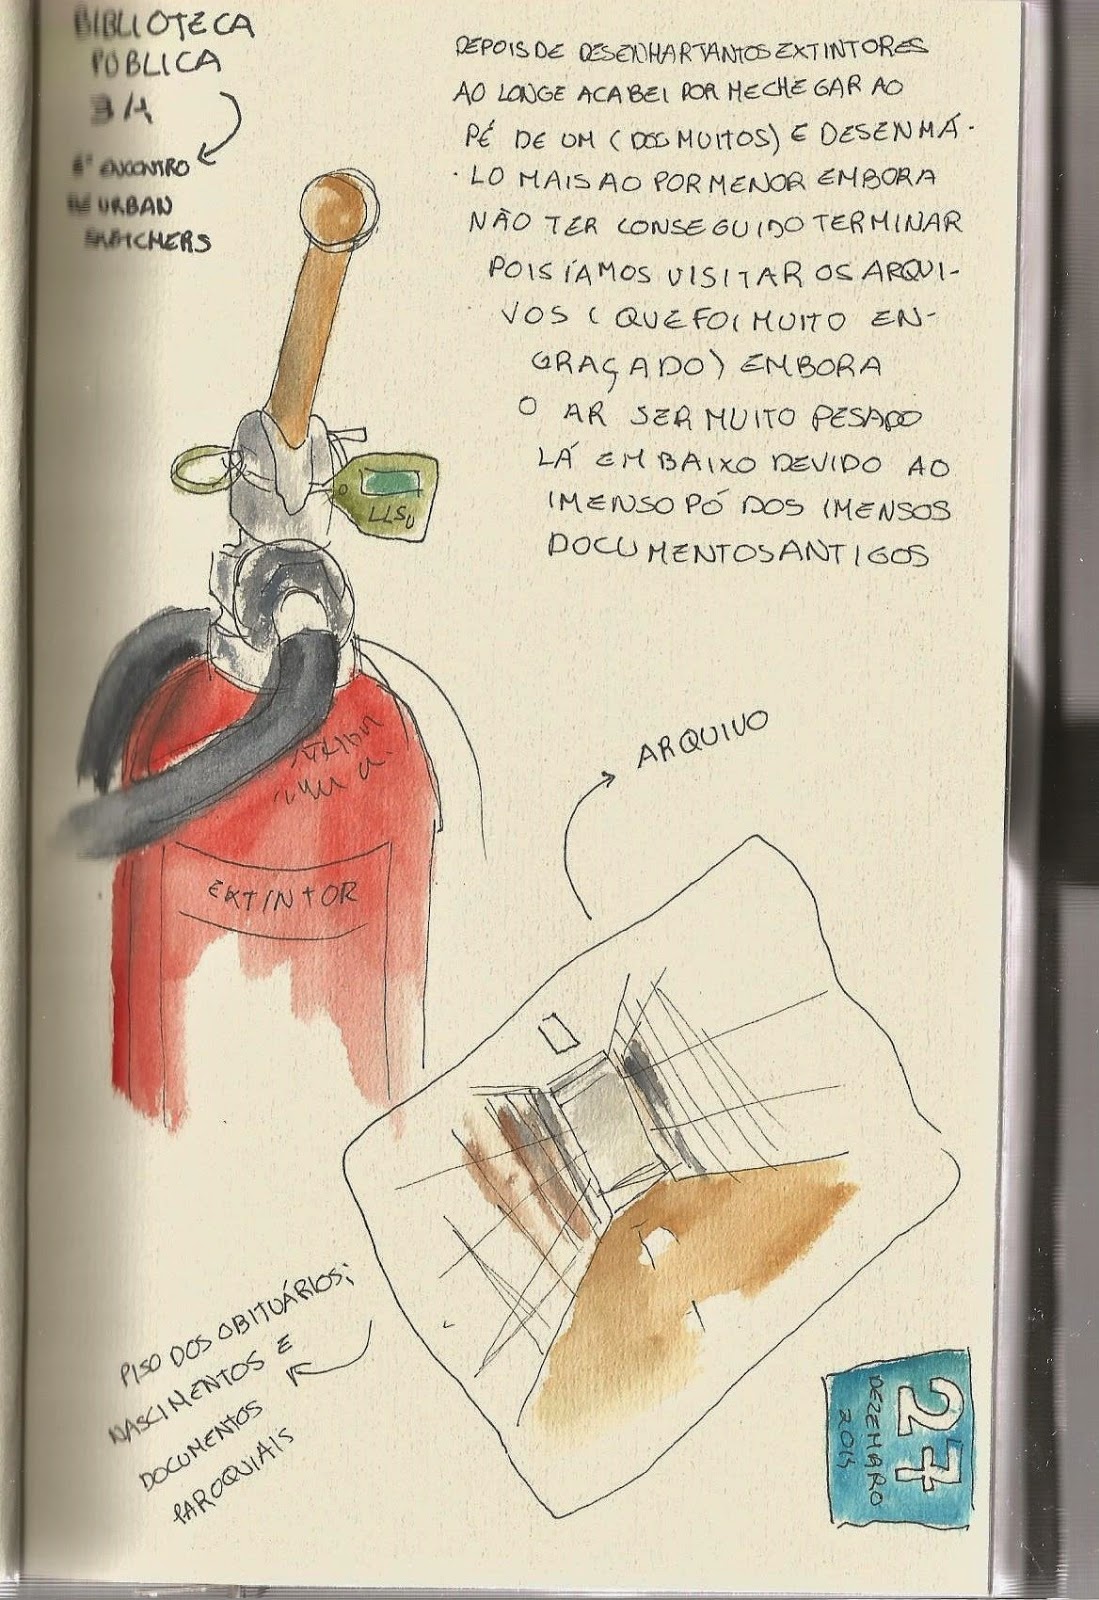 BIBLIOTECA
PÚBLICA
3/4
ENCONTRO
DE URBAN
SKETCHERS
DEPOIS DE DESENHAR TANTOS EXTINTORES
AO LONGE ACABEI POR ME CHEGAR AO
PÉ DE UM (DOS MUITOS) E DESENHÁ-
-LO MAIS AO PORMENOR EMBORA
NÃO TER CONSEGUIDO TERMINAR
POIS ÍAMOS VISITAR OS ARQUI-
VOS (QUE FOI MUITO EN-
GRAÇADO) EMBORA
O AR SER MUITO PESADO
LÁ EM BAIXO DEVIDO AO
IMENSO PÓ DOS IMENSOS
DOCUMENTOS ANTIGOS
EXTINTOR
ARQUIVO
PISO DOS OBITUÁRIOS;
NASCIMENTOS E
DOCUMENTOS
PAROQUIAIS
27
DEZEMBRO